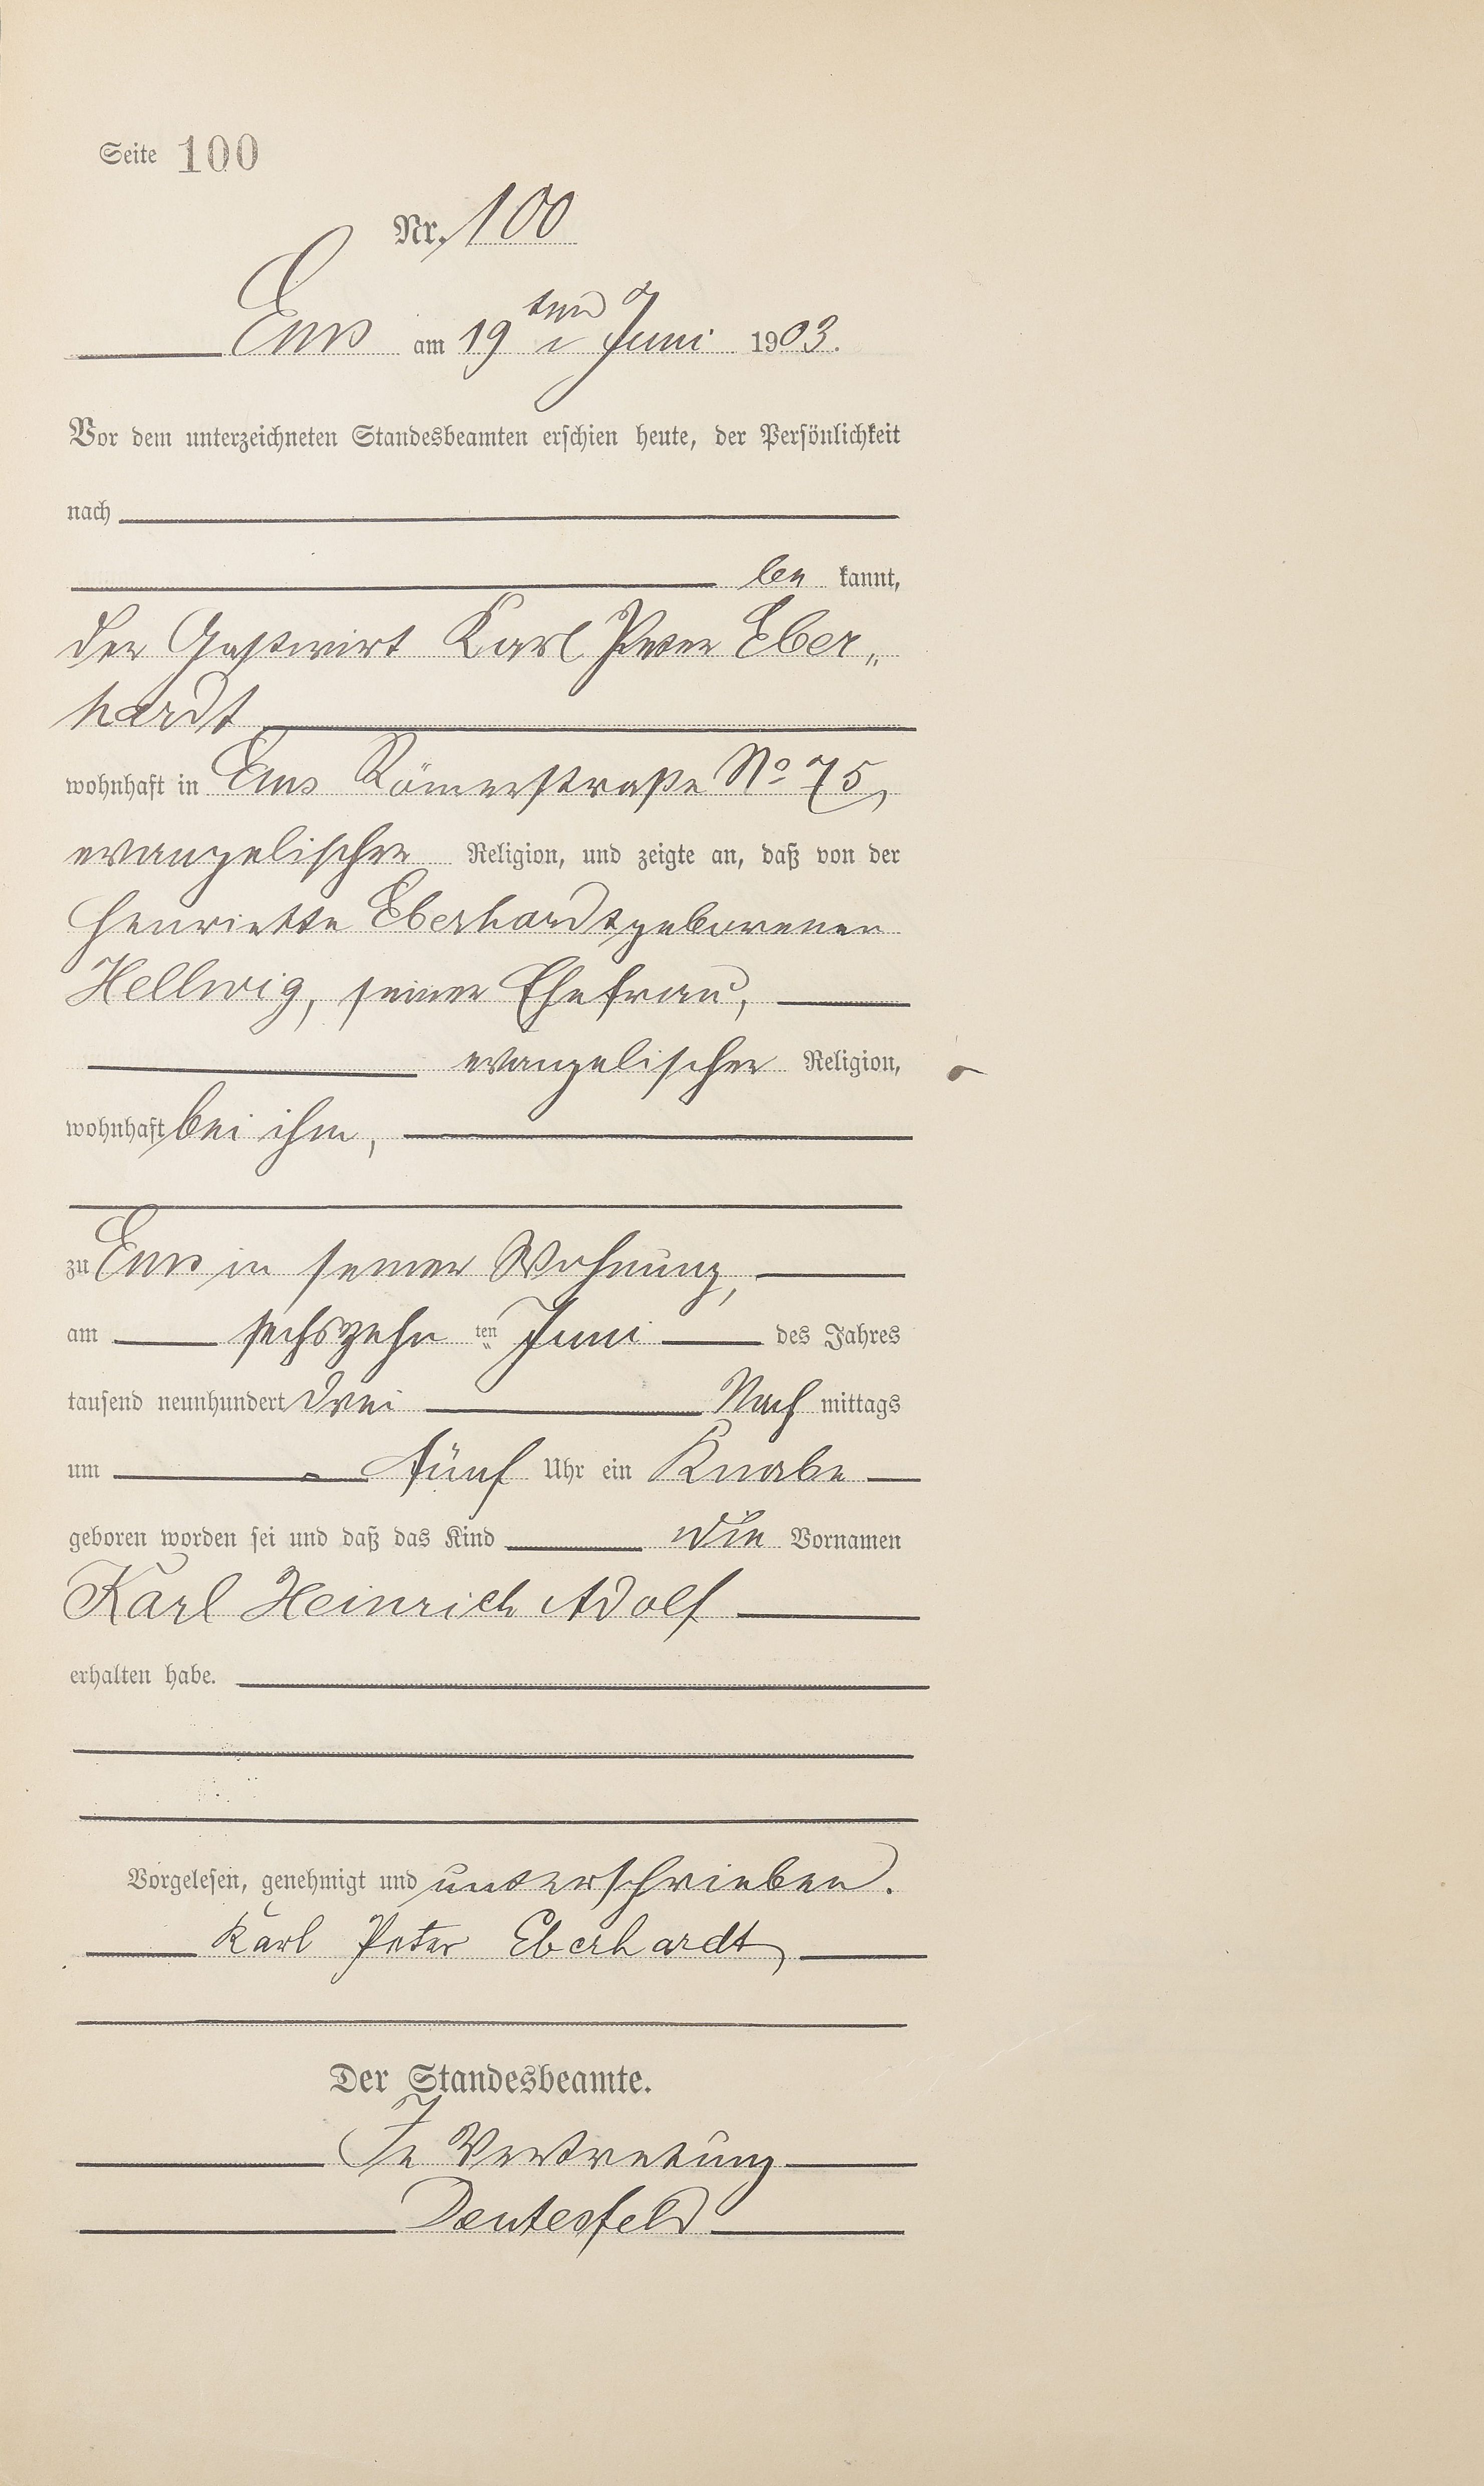 Seite 100
Nr. 100
Ems am 19ten Juni 1903.
Vor dem unterzeichneten Standesbeamten erschien heute, der Persönlichkeit
nach
be kannt,
der Gastwirt Karl Peter Eber„
hardt
wohnhaft in Ems Römerstraße No 75,
evangelischer Religion, und zeigte an, daß von der
Henriette Eberhardt geborenen
Hellwig, seiner Ehefrau,
evangelischer Religion,
wohnhaft bei ihm,
zu Ems in seiner Wohnung,
am sechszehn ten Juni des Jahres
tausend neunhundert drei Nach mittags
um fünf Uhr ein Knabe
geboren worden sei und daß das Kind die Vornamen
Karl Heinrich Adolf
erhalten habe.
Vorgelesen, genehmigt und unterschrieben.
Karl Peter Eberhardt
Der Standesbeamte.
In Vertretung